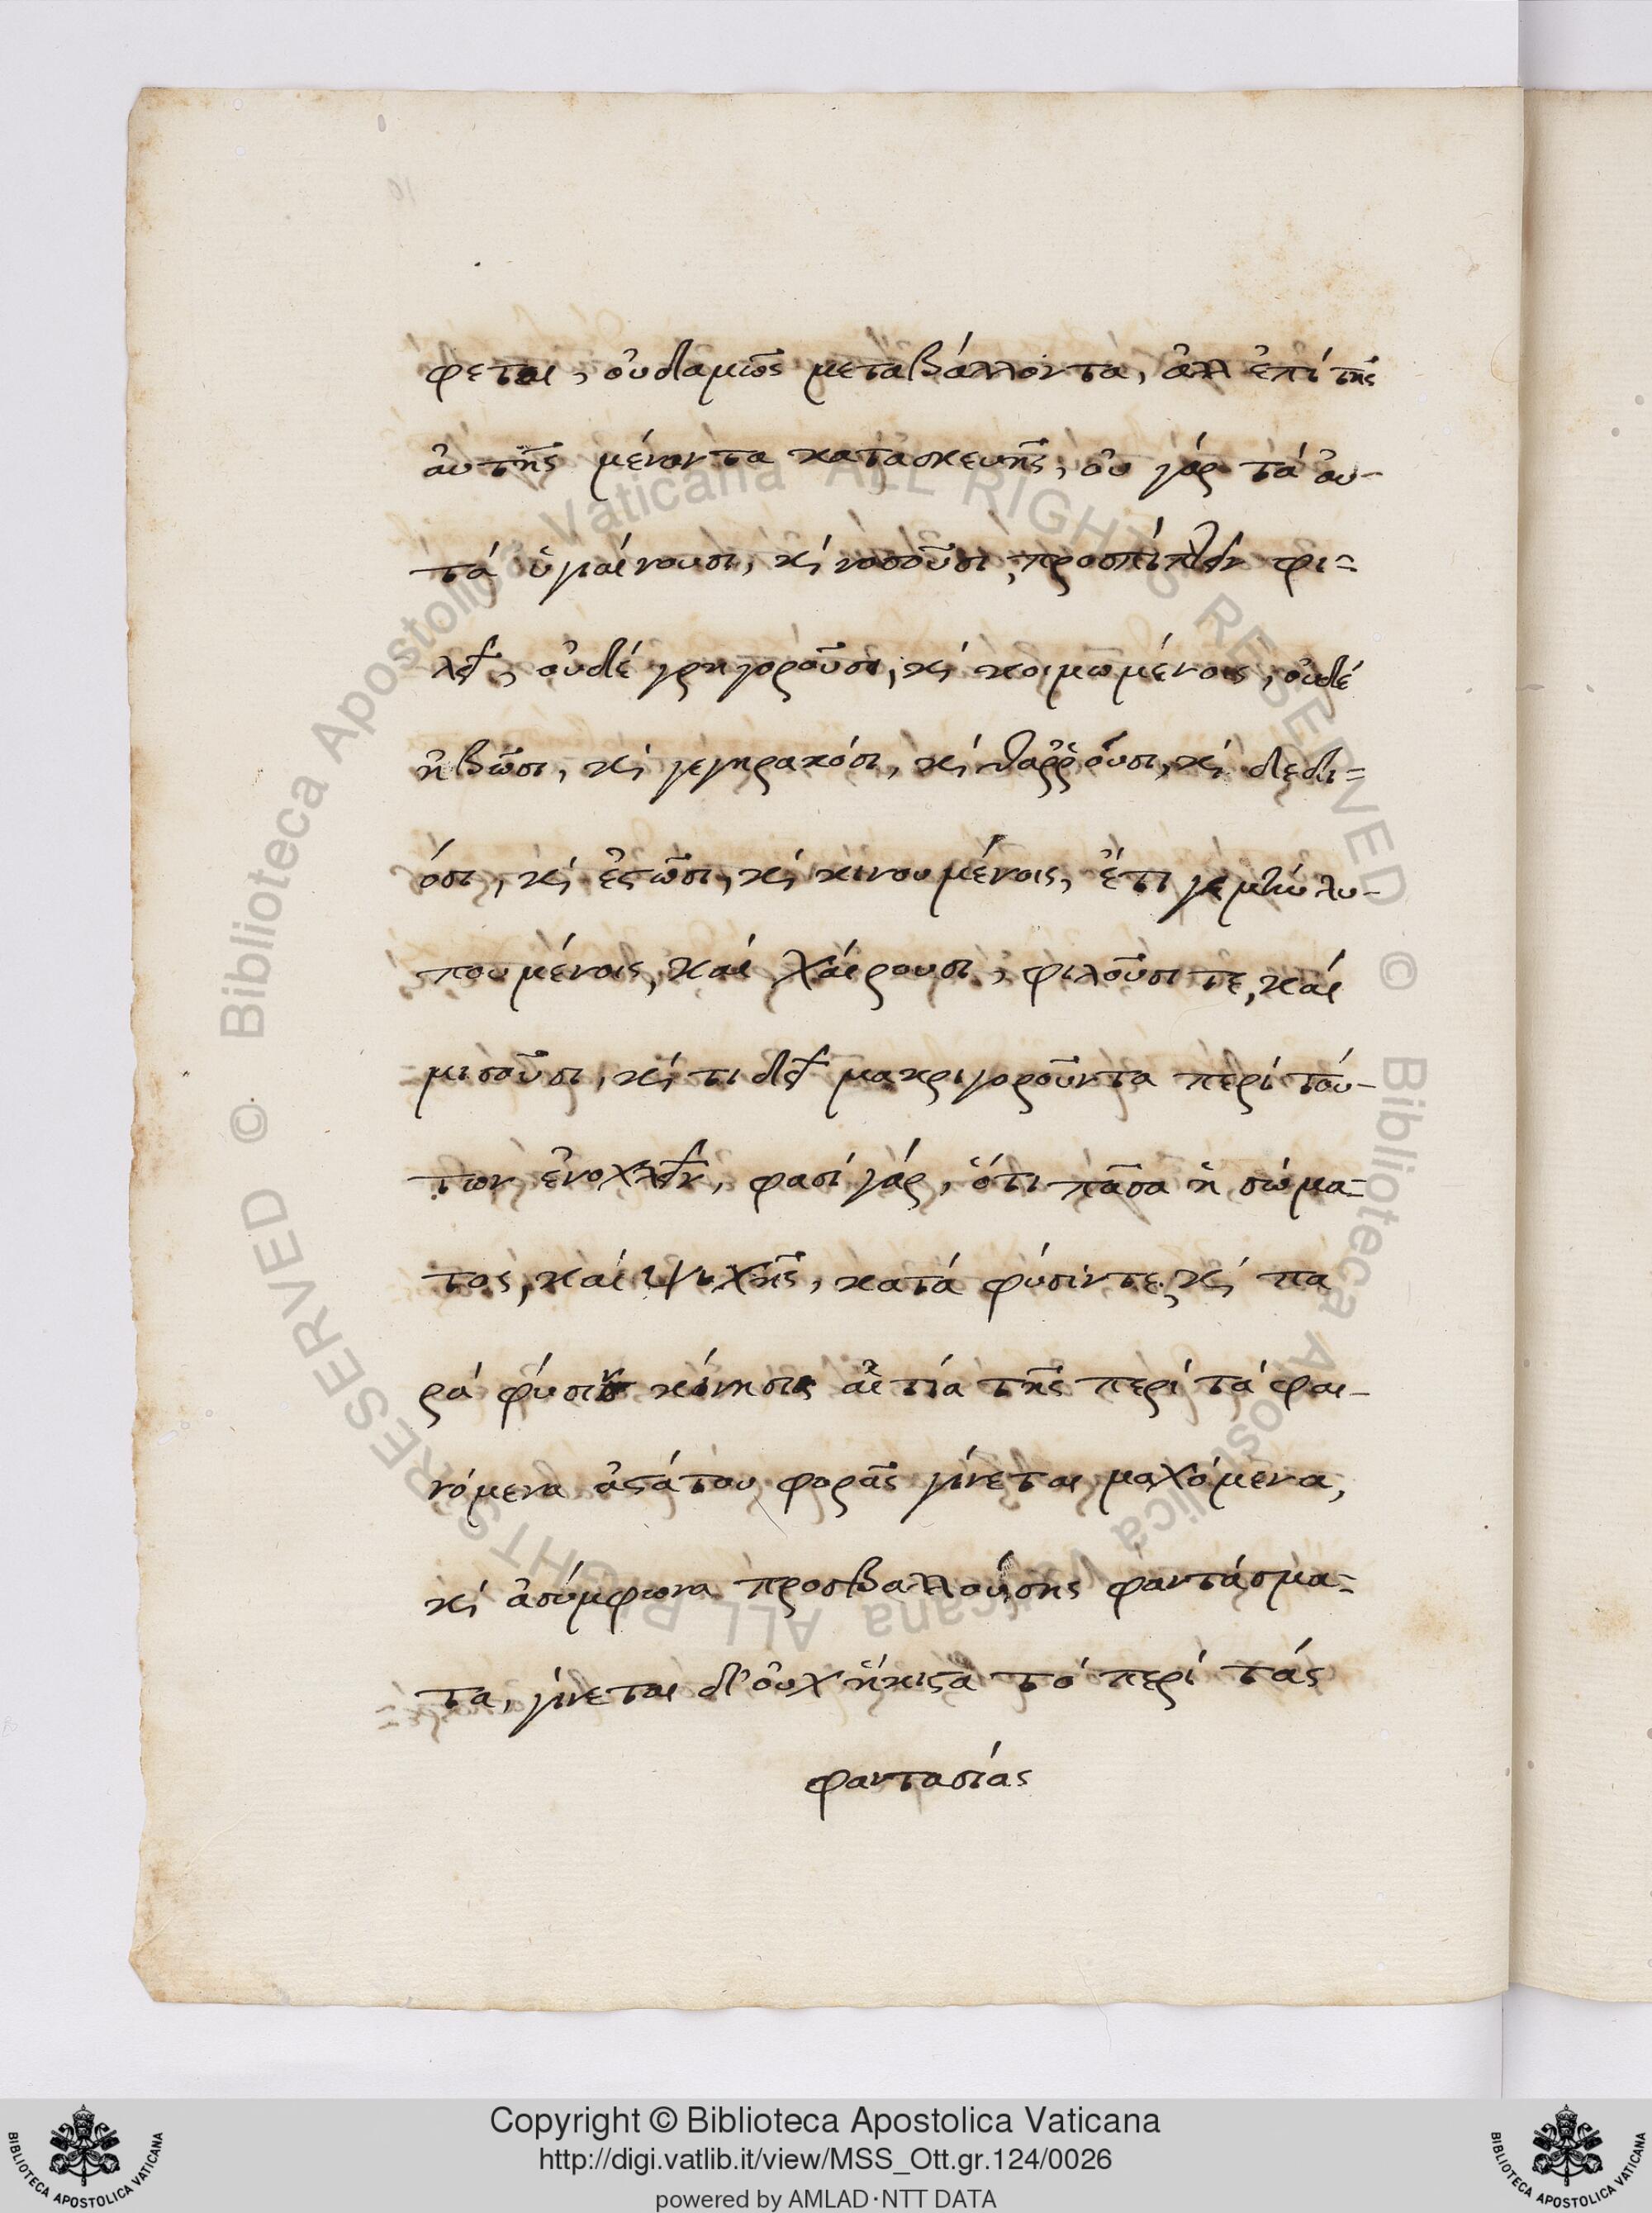 φεται, οὐδαμῶς μεταβάλλοντα, ἀλλ ἐπί τῆς
αὐτῆς μένοντα κατασκευῆς, οὐ γάρ τά αὐ-
τά ὑγιαίνουσι, κί νοσοῦσι, προσπίπλειν φι=
λεῖ, οὐδέ γρηγοροῦσι, κί κοιμωμένοις, οὐδέ
ἡβῶσι, κί γεγηρακόσι, κί θαῤῥοῦσι, κί δεδι=
όσι, κί ἑστῶσι, κί κινουμένοις, ἔτι γε μὴν λυ-
πουμένοις, καί χαίρουσι, φιλοῦσι τε, καί
μισοῦσι, κί τι δεῖ μακριγοροῦντα περί τού-
των ἐνοχλεῖν, φασί γάρ, ὅτι πᾶσα ἡ σώμα=
τος, καί ψυχῆς, κατά φύσιν τε, κί πα
ρά φύσιν κίνησις αἰτία τῆς περί τά φαι-
νόμενα ἀστάτου φορᾶς γίνεται μαχόμενα,
κί ἀσύμφωνα προσβαλλούσης φαντάσμα=
τα, γίνεται δ' οὐχ ἥκιστα τό περί τάς
φαντασίας
Copyright © Biblioteca Apostolica Vaticana
http://digi.vatlib.it/view/MSS_Ott.gr.124/0026
powered by AMLAD·NTT DATA
BIBLIOTECA APOSTOLICA VATICANA
BIBLIOTECA APOSTOLICA VATICANA
© Biblioteca Apostolica Vaticana ALL RIGHTS RESERVED © Biblioteca Apostolica Vaticana ALL RIGHTS RESERVED